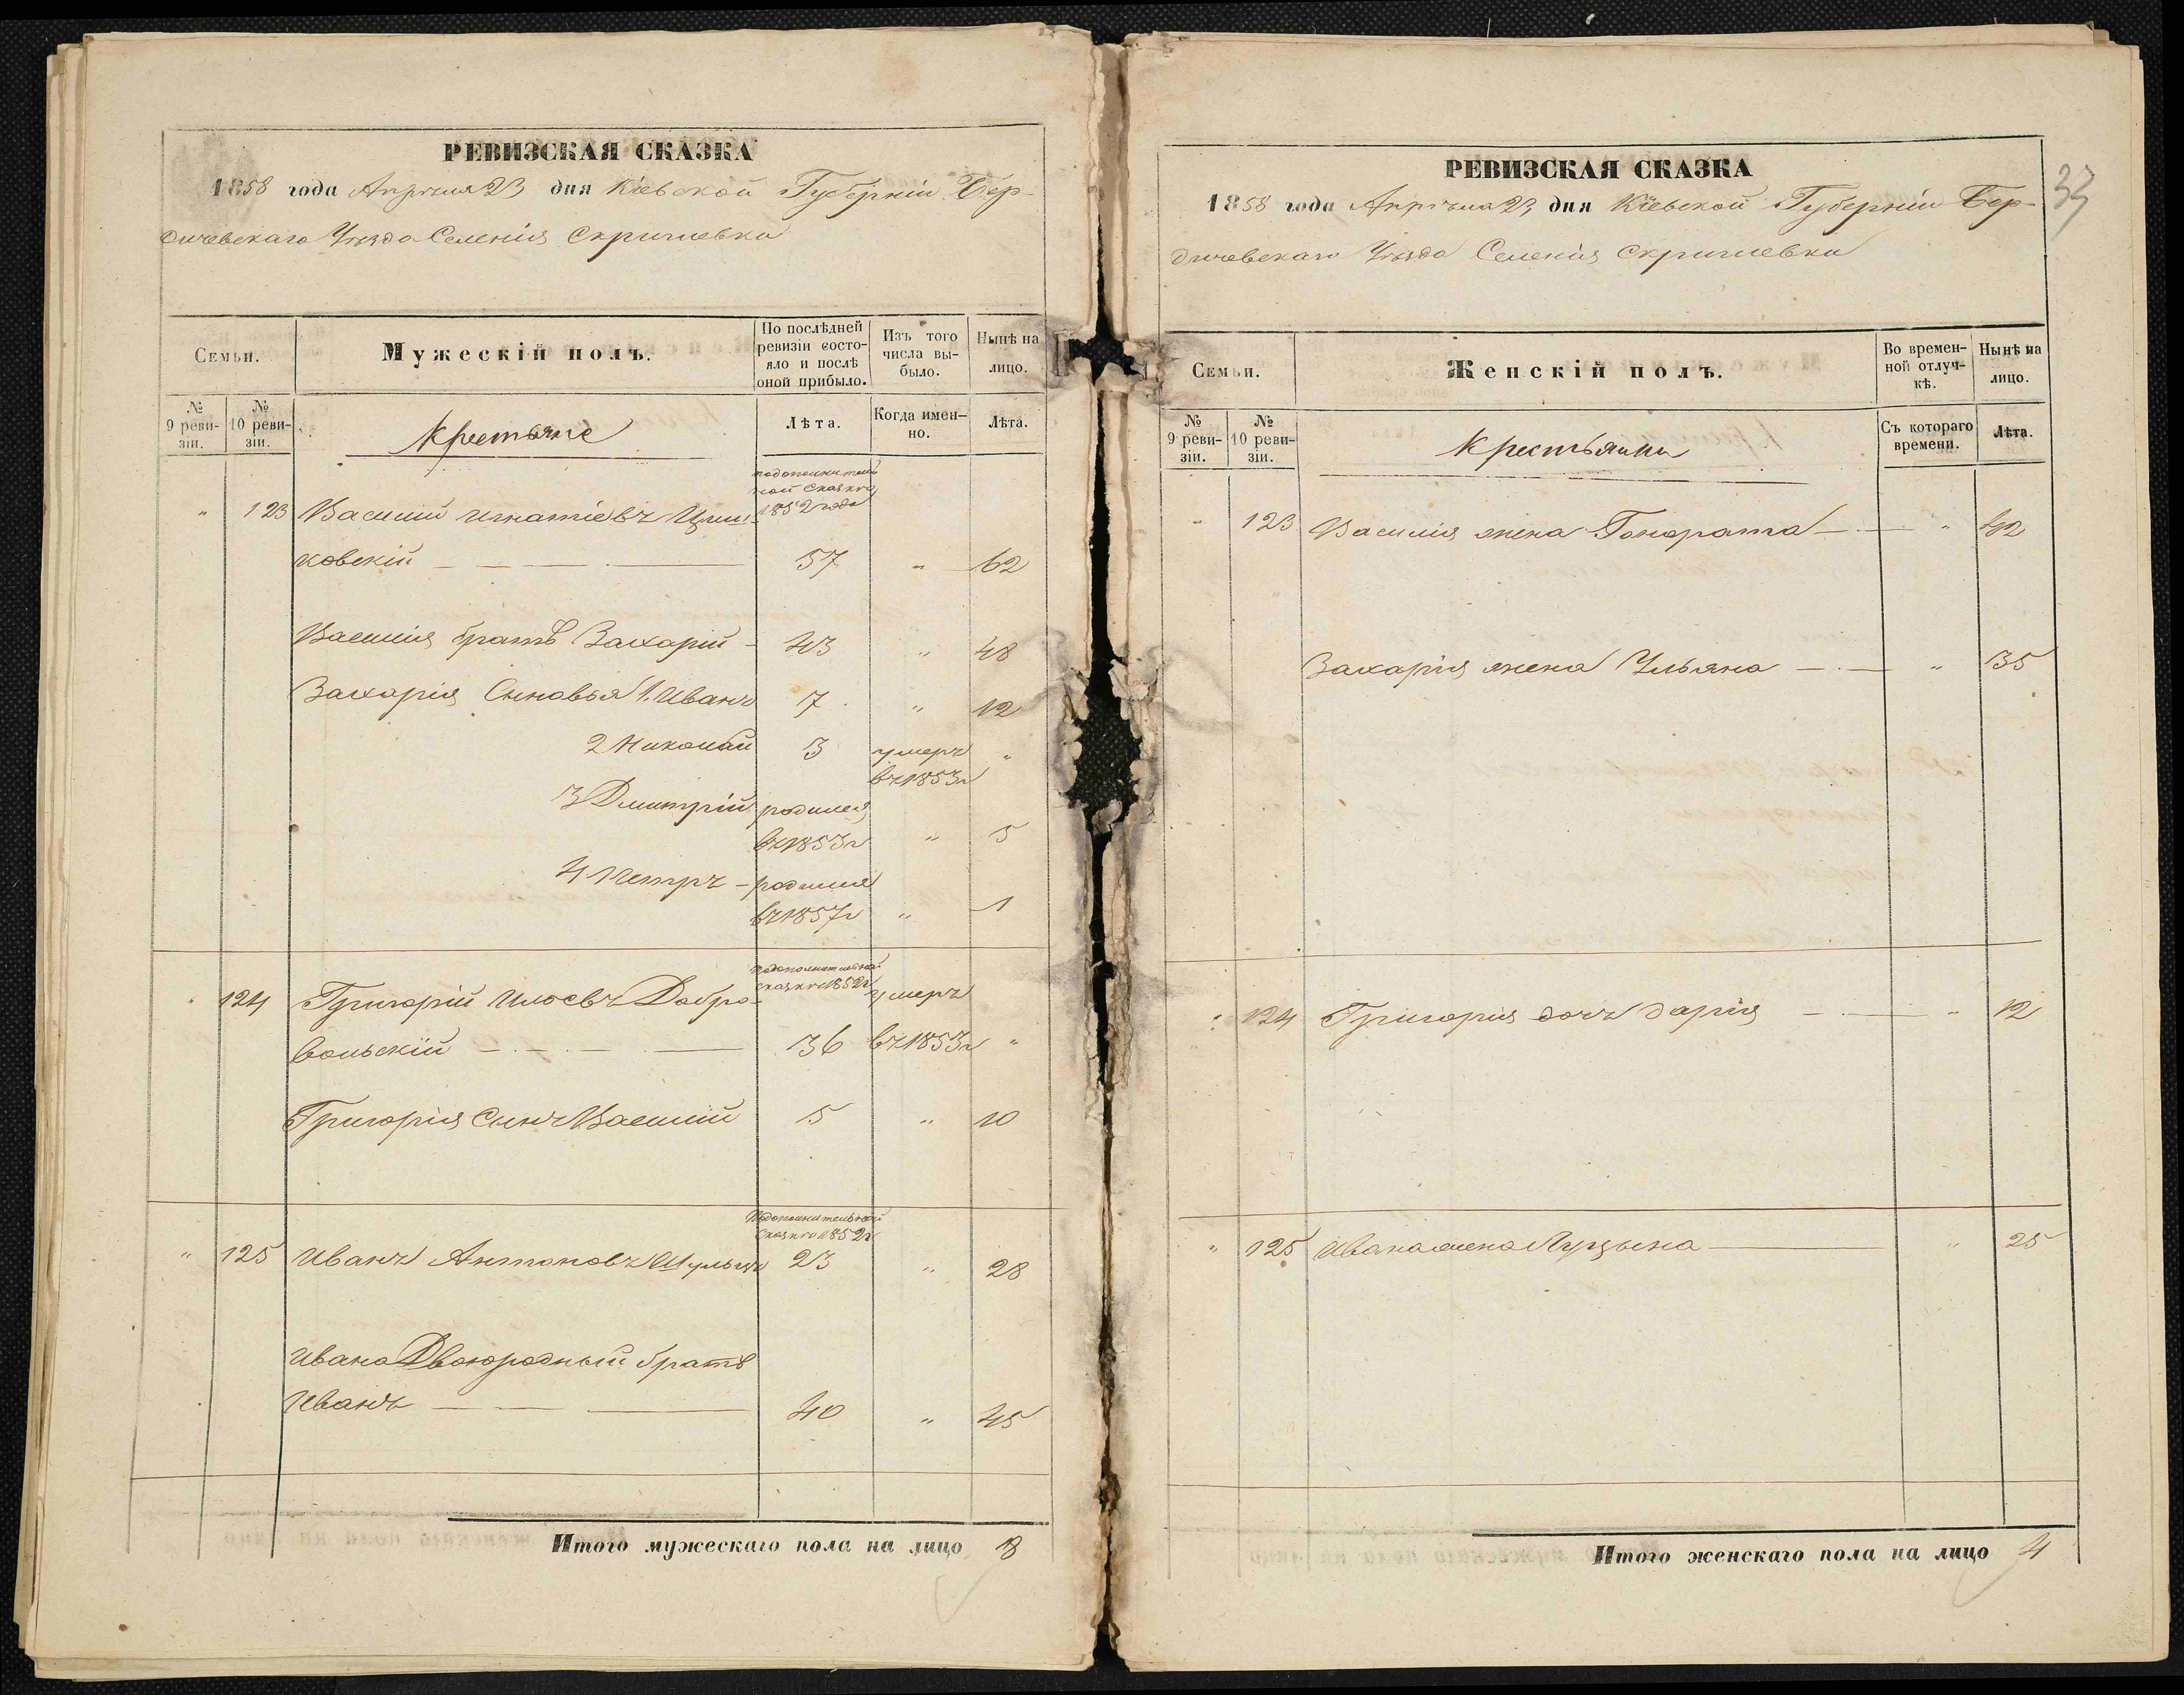 РЕВИЗСКАЯ СКАЗКА
1858 года Апрѣля 23 дня Кіевской Губерніи Бер-
дичевскаго Уѣзда Селенія Скригилевки
Семьи.
Мужескій полъ.
По послѣдней ревизіи состо-яло и послѣ оной прибыло.
Изъ того числа вы-было.
Нынѣ на лицо.
№ 9 реви-зіи.
№ 10 реви-зіи.
Крестьяне
Лѣта.
Когда имен-но.
Лѣта.
подополнитель
ной сказкѣ
1852 года
" 123 Василий Игнатіевъ
ковскій 57 " 62
Василія братъ Захарій 43 " 48
Захарія Сыновья 1. Иванъ 7 " 12
2 Николай 3 умеръ "
въ 1853 г
3 Дмитрій родился
въ 1853 г " 5
4 Петръ - родился
въ 1857 г " 1
подополнительной
сказкѣ 1852 г
" 124 Григорій Добро- умеръ
вольскій 36 въ 1853 г "
Григорія Сынъ Василий 5 " 10
Подополнительной
сказкѣ 1852 г
" 125 Иванъ Антоновъ 23 " 28
Ивана Двоюродный братъ
Иванъ 40 " 45
Итого мужескаго пола на лицо 8
33
РЕВИЗСКАЯ СКАЗКА
1858 года Апрѣля 23 дня Кіевской Губерніи Бер-
дичевскаго Уѣзда Селенія Скригилевки
Семьи.
Женскій полъ.
Во времен-ной отлуч-кѣ.
Нынѣ на лицо.
№ 9 реви-зіи.
№ 10 реви-зіи.
Крестьянки
Съ котораго времени.
Лѣта.
" 123 Василия жена Гонората " 42
Захарія жена Ульяна " 35
" 124 Григорія дочь Дарія " 12
" 125 Ивана жена Луцына " 25
Итого женскаго пола на лицо 4